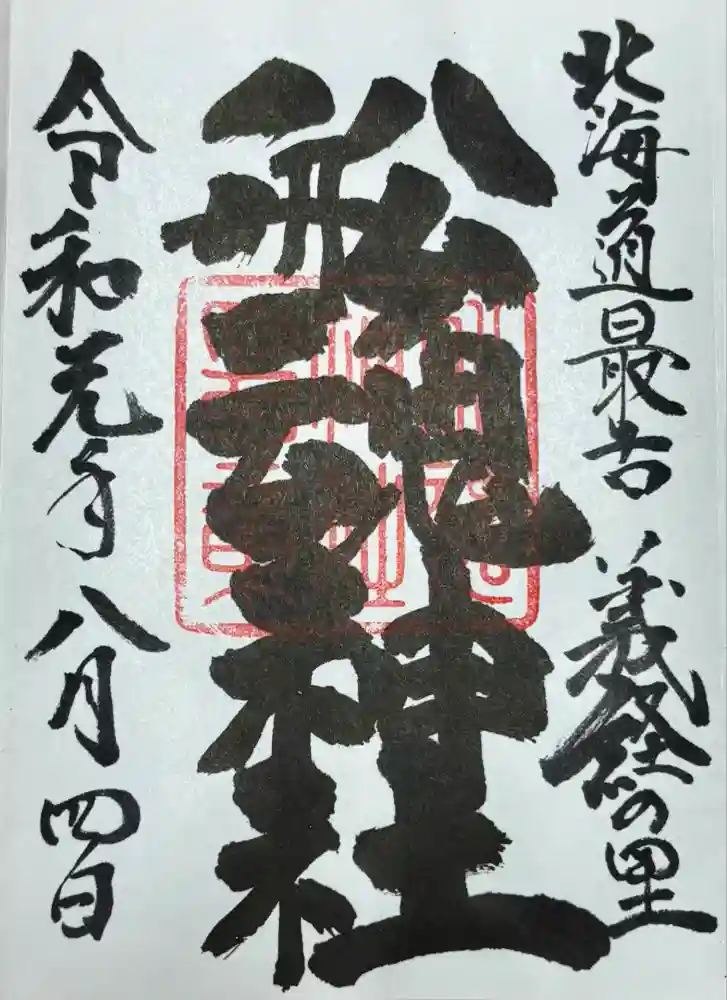 北海道最古 義経の里
船魂神社
令和元年八月四日